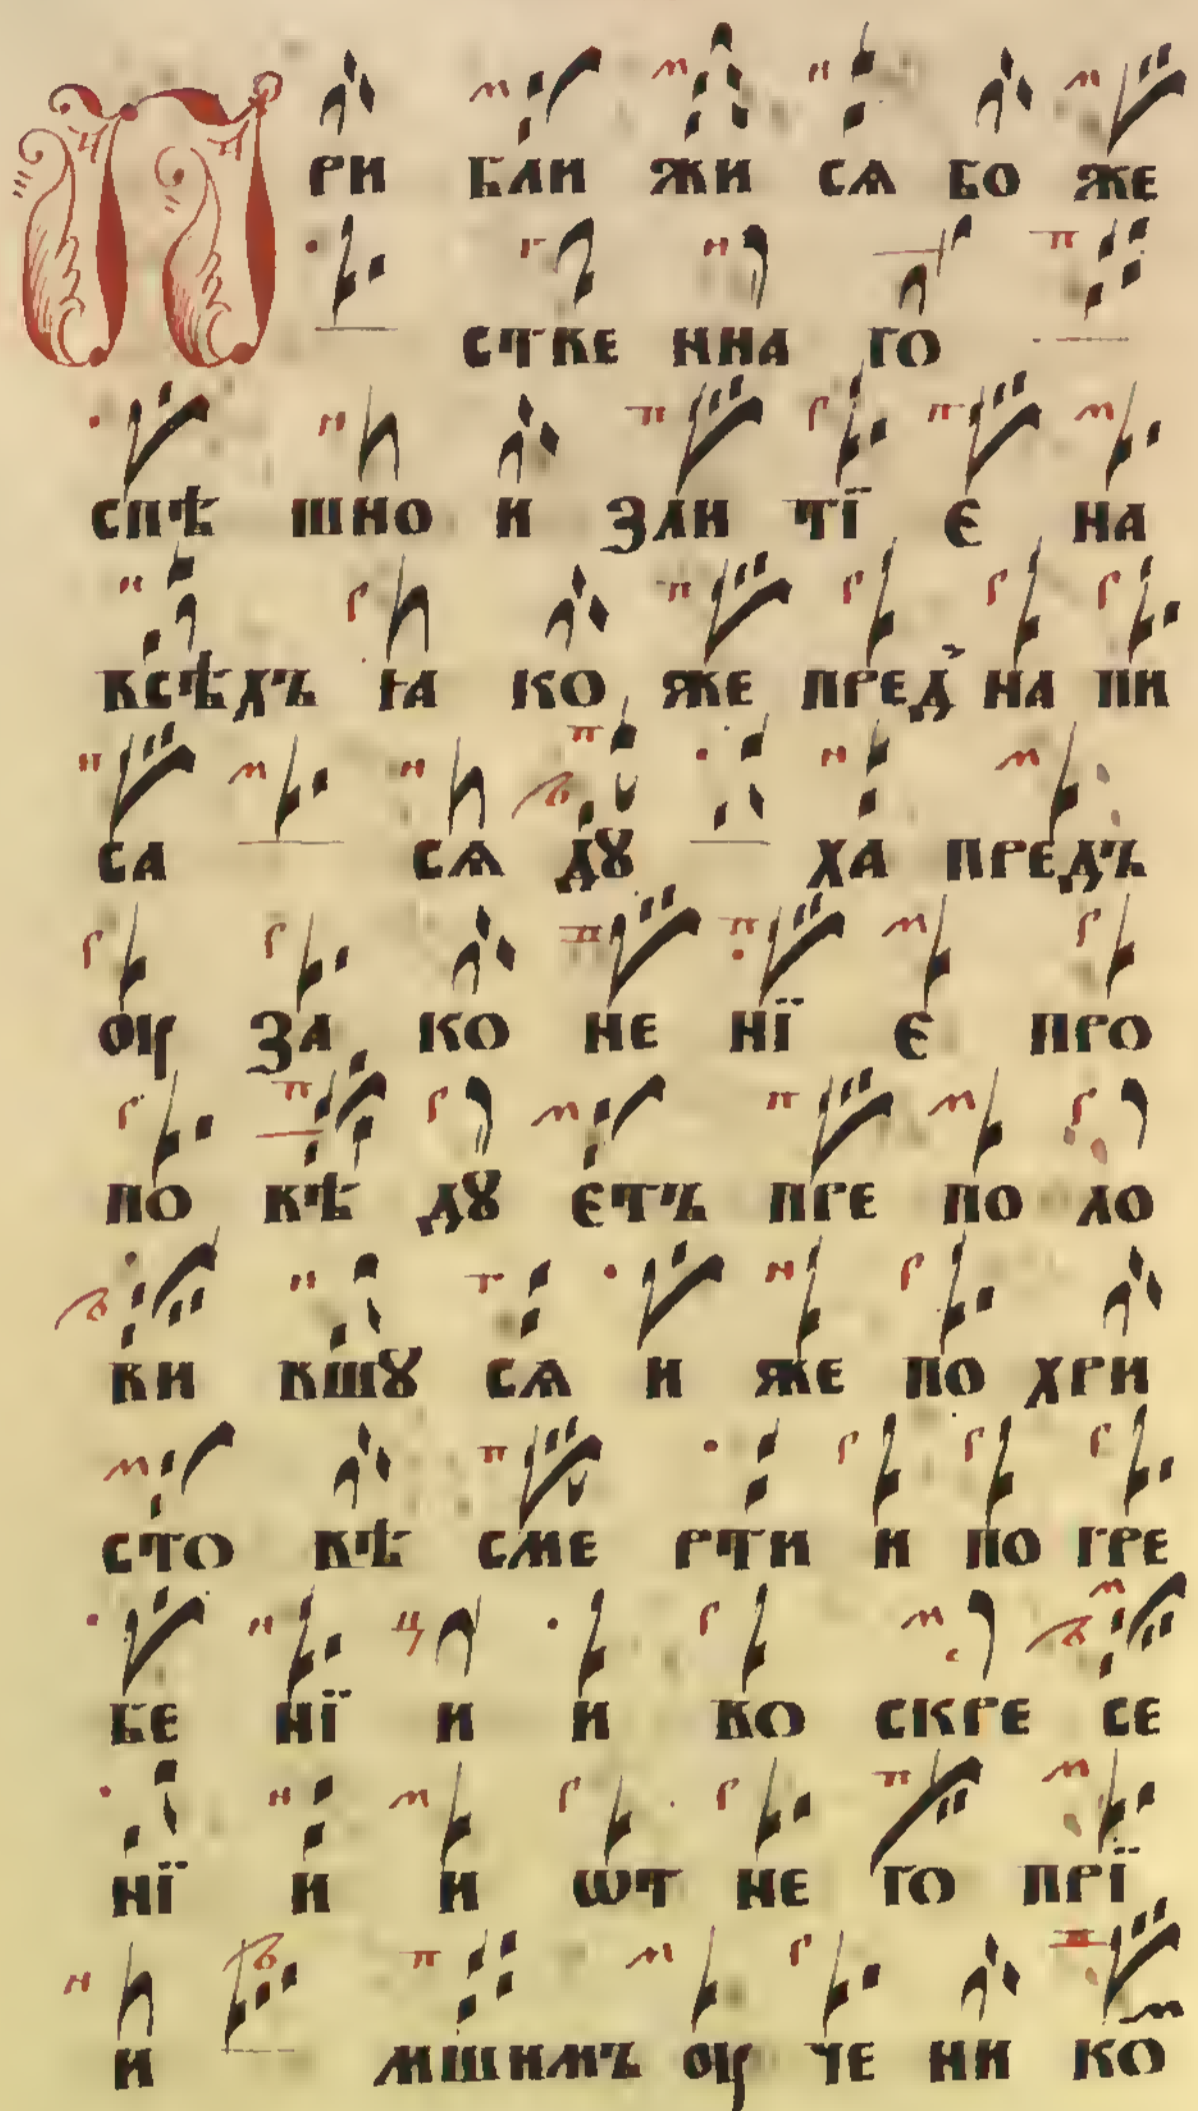 ПРИ БЛИ ЖИ СѦ БО ЖЕ
СТВЕ ННА ГО
СПѢ ШНО И ЗЛИ ТЇ Є НА
ВСѢХЪ ꙖА КО ЖЕ ПРЕД НА ПИ
СА СѦ ДꙊ ХА ПРЕДЪ
ОУ ЗА КО НЕ НЇ Є ПРО
ПО ВѢ ДꙊ ЄТЪ ПРЕ ПО ЛО
ВИ ВШꙊ СѦ И ЖЕ ПО ХРИ
СТО ВѢ СМЕ РТИ И ПО ГРЕ
БЕ НЇ И И ВО СКРЕ СЕ
НЇ И И ѠТ НЕ ГО ПРЇ
И МШИМЪ ОУ ЧЕ НИ КОⷨ